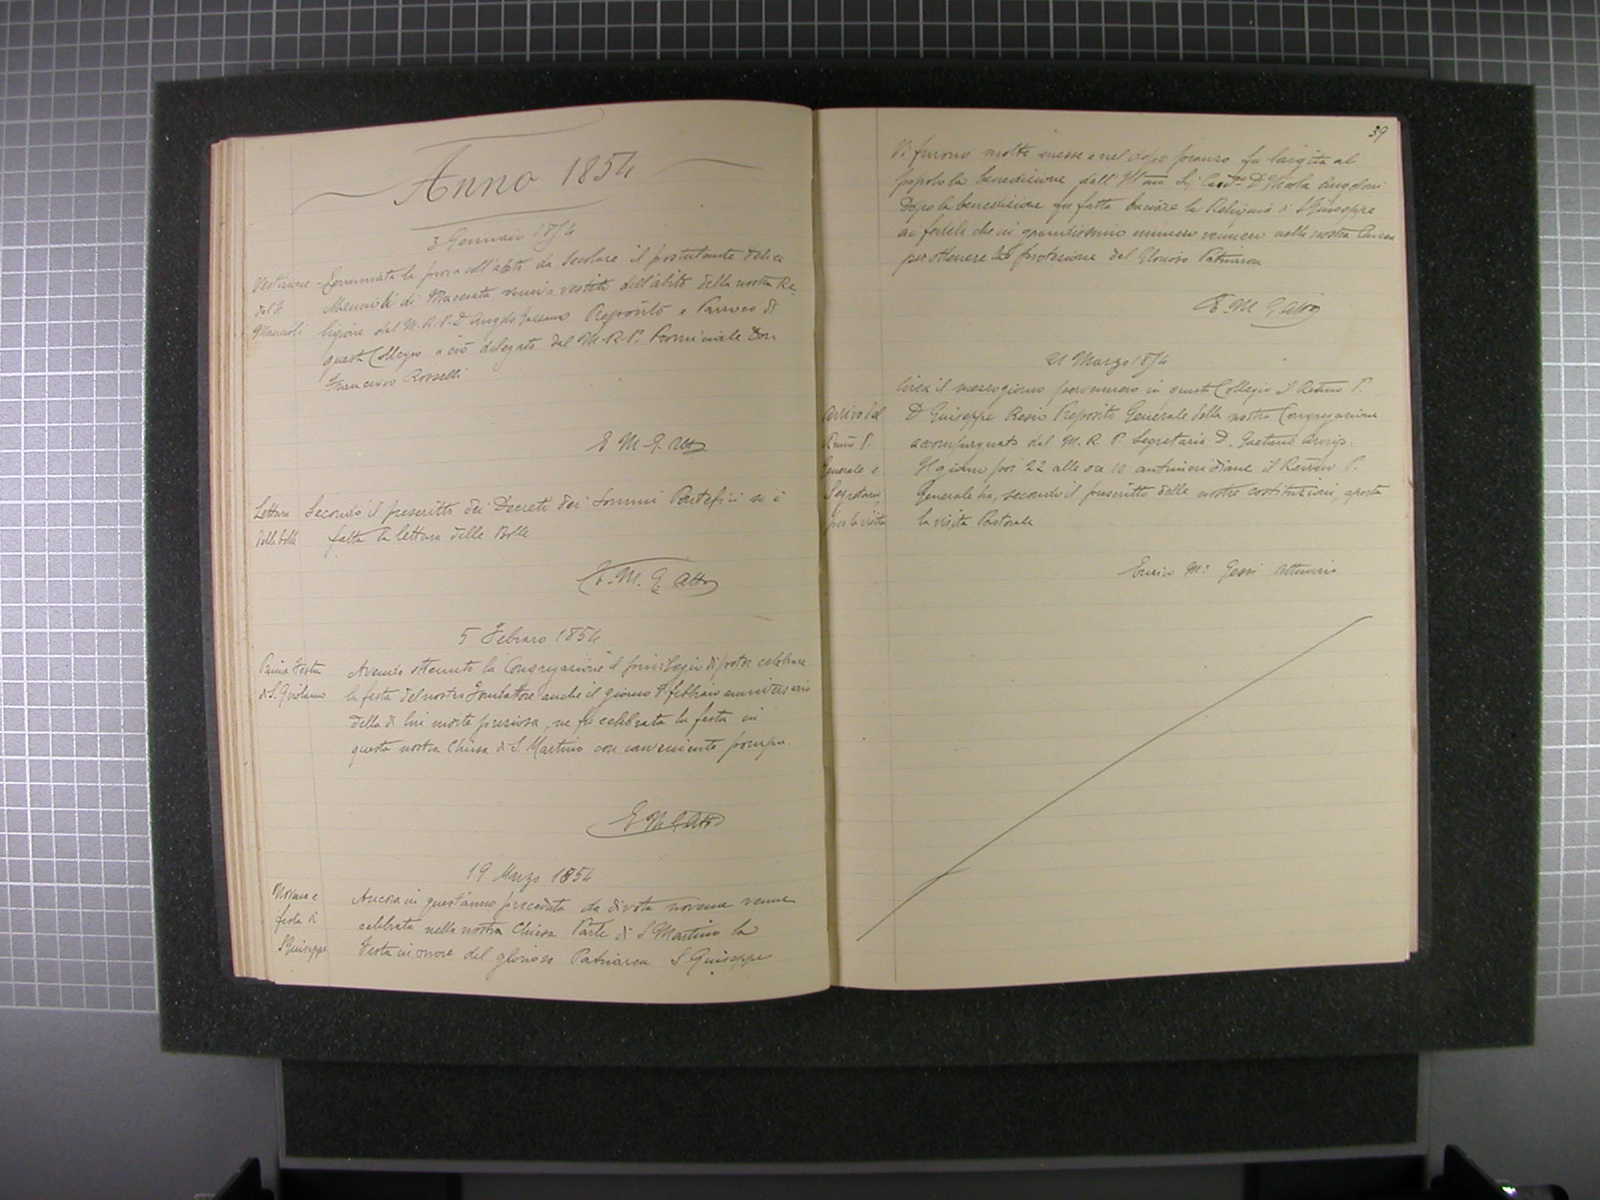 Anno 1854
3 Gennaio 1854
Vestizione
del F.
Mancioli
Terminata la prova coll'abito da secolare il postulante Felice
Mancioli di Macerata venne vestito dell'abito della nostra Re-
ligione dal M. R. P. D. Angelo Preposito e Parroco di
questo Collegio a ciò delegato dal M. R. P. Provinciale Don
Francesco Rosselli
E M G Atto
Lettura
delle bolle
Secondo il prescritto dei Decreti dei Sommi Pontefici si è
fatta la lettura delle Bolle
E. M. G. Atto
5 Febraro 1854
Prima Festa
di S. Girolamo
Avendo ottenuto la Congregazione il privilegio di poter celebrare
la festa del nostro Fondatore anche il giorno 8 febbraio anniversario
della di lui morte preziosa, ne fu celebrata la festa in
questa nostra Chiesa di S. Martino con conveniente pompa.
E M G Atto
19 Marzo 1854
Novena e
festa di
S Giuseppe
Ancora in quest'anno preceduta da divota novena venne
celebrata nella nostra Chiesa Parle di S Martino la
Festa in onore del glorioso Patriarca S Giuseppe
39
Vi furono molte messe e nel dopo pranzo fu largita al
popolo la benedizione dall'Illmo Sig D Nicola Angelini
Dopo la benedizione fu fatta baciare la Reliquia di S Giuseppe
ai fedeli che in grandissimo numero vennero nella nostra Chiesa
per ottenere la protezione del Glorioso Patriarca
E. M. G Atto
21 Marzo 1854
Arrivo del
Rmo P.
Generale e
Segretario
per la visita
Circa il mezzogiorno pervennero in questo Collegio il Revmo P.
D Giuseppe Besio Preposito Generale della nostra Congregazione
accompagnato dal M. R. P Segretario D. Gaetano
Il giorno poi 22 alle ore antimeridiane il Revmo P.
Generale ha, secondo il prescritto delle nostre costituzioni, aperta
la visita Pastorale
Enrico Ma Gessi Attuario